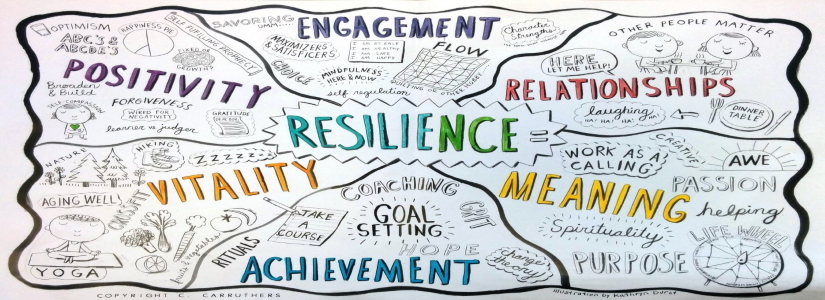 OPTIMISM
ABC'S &
ABCDE'S
HAPPINESS PIE
SELF FULFILLING PROPHECY
FIXED OR
GROWTH
POSITIVITY
Broaden
& Build
SELF-COMPASSION
FORGIVENESS
WIRED FOR
NEGATIVITY
learner vs judger
GRATITUDE
SAVORING
UMM...
ENGAGEMENT
MAXIMIZERS
& SATISFICERS
CHOICE
I AM
I AM HEALTHY
I AM
I AM HAPPY
FLOW
MINDFULNESS
HERE & NOW
self regulation
Character
Strengths
OTHER PEOPLE MATTER
HERE
LET ME HELP!
RELATIONSHIPS
laughing
HA! HA! HA! HA!
DINNER
TABLE
RESILIENCE =
NATURE
HIKING
ZZZZZZZ
VITALITY
AGING WELL!
CROSSFIT
YOGA
fruits & vegetables
RITUALS
COACHING
TAKE
A
COURSE
GOAL
SETTING
GRIT
HOPE
ACHIEVEMENT
Change
theory
WORK AS A
CALLING
CREATIVE
AWE
MEANING
PASSION
helping
Spirituality
LIFE WHEEL
PURPOSE
COPYRIGHT C. CARRUTHERS
Illustration by Kathryn Durst